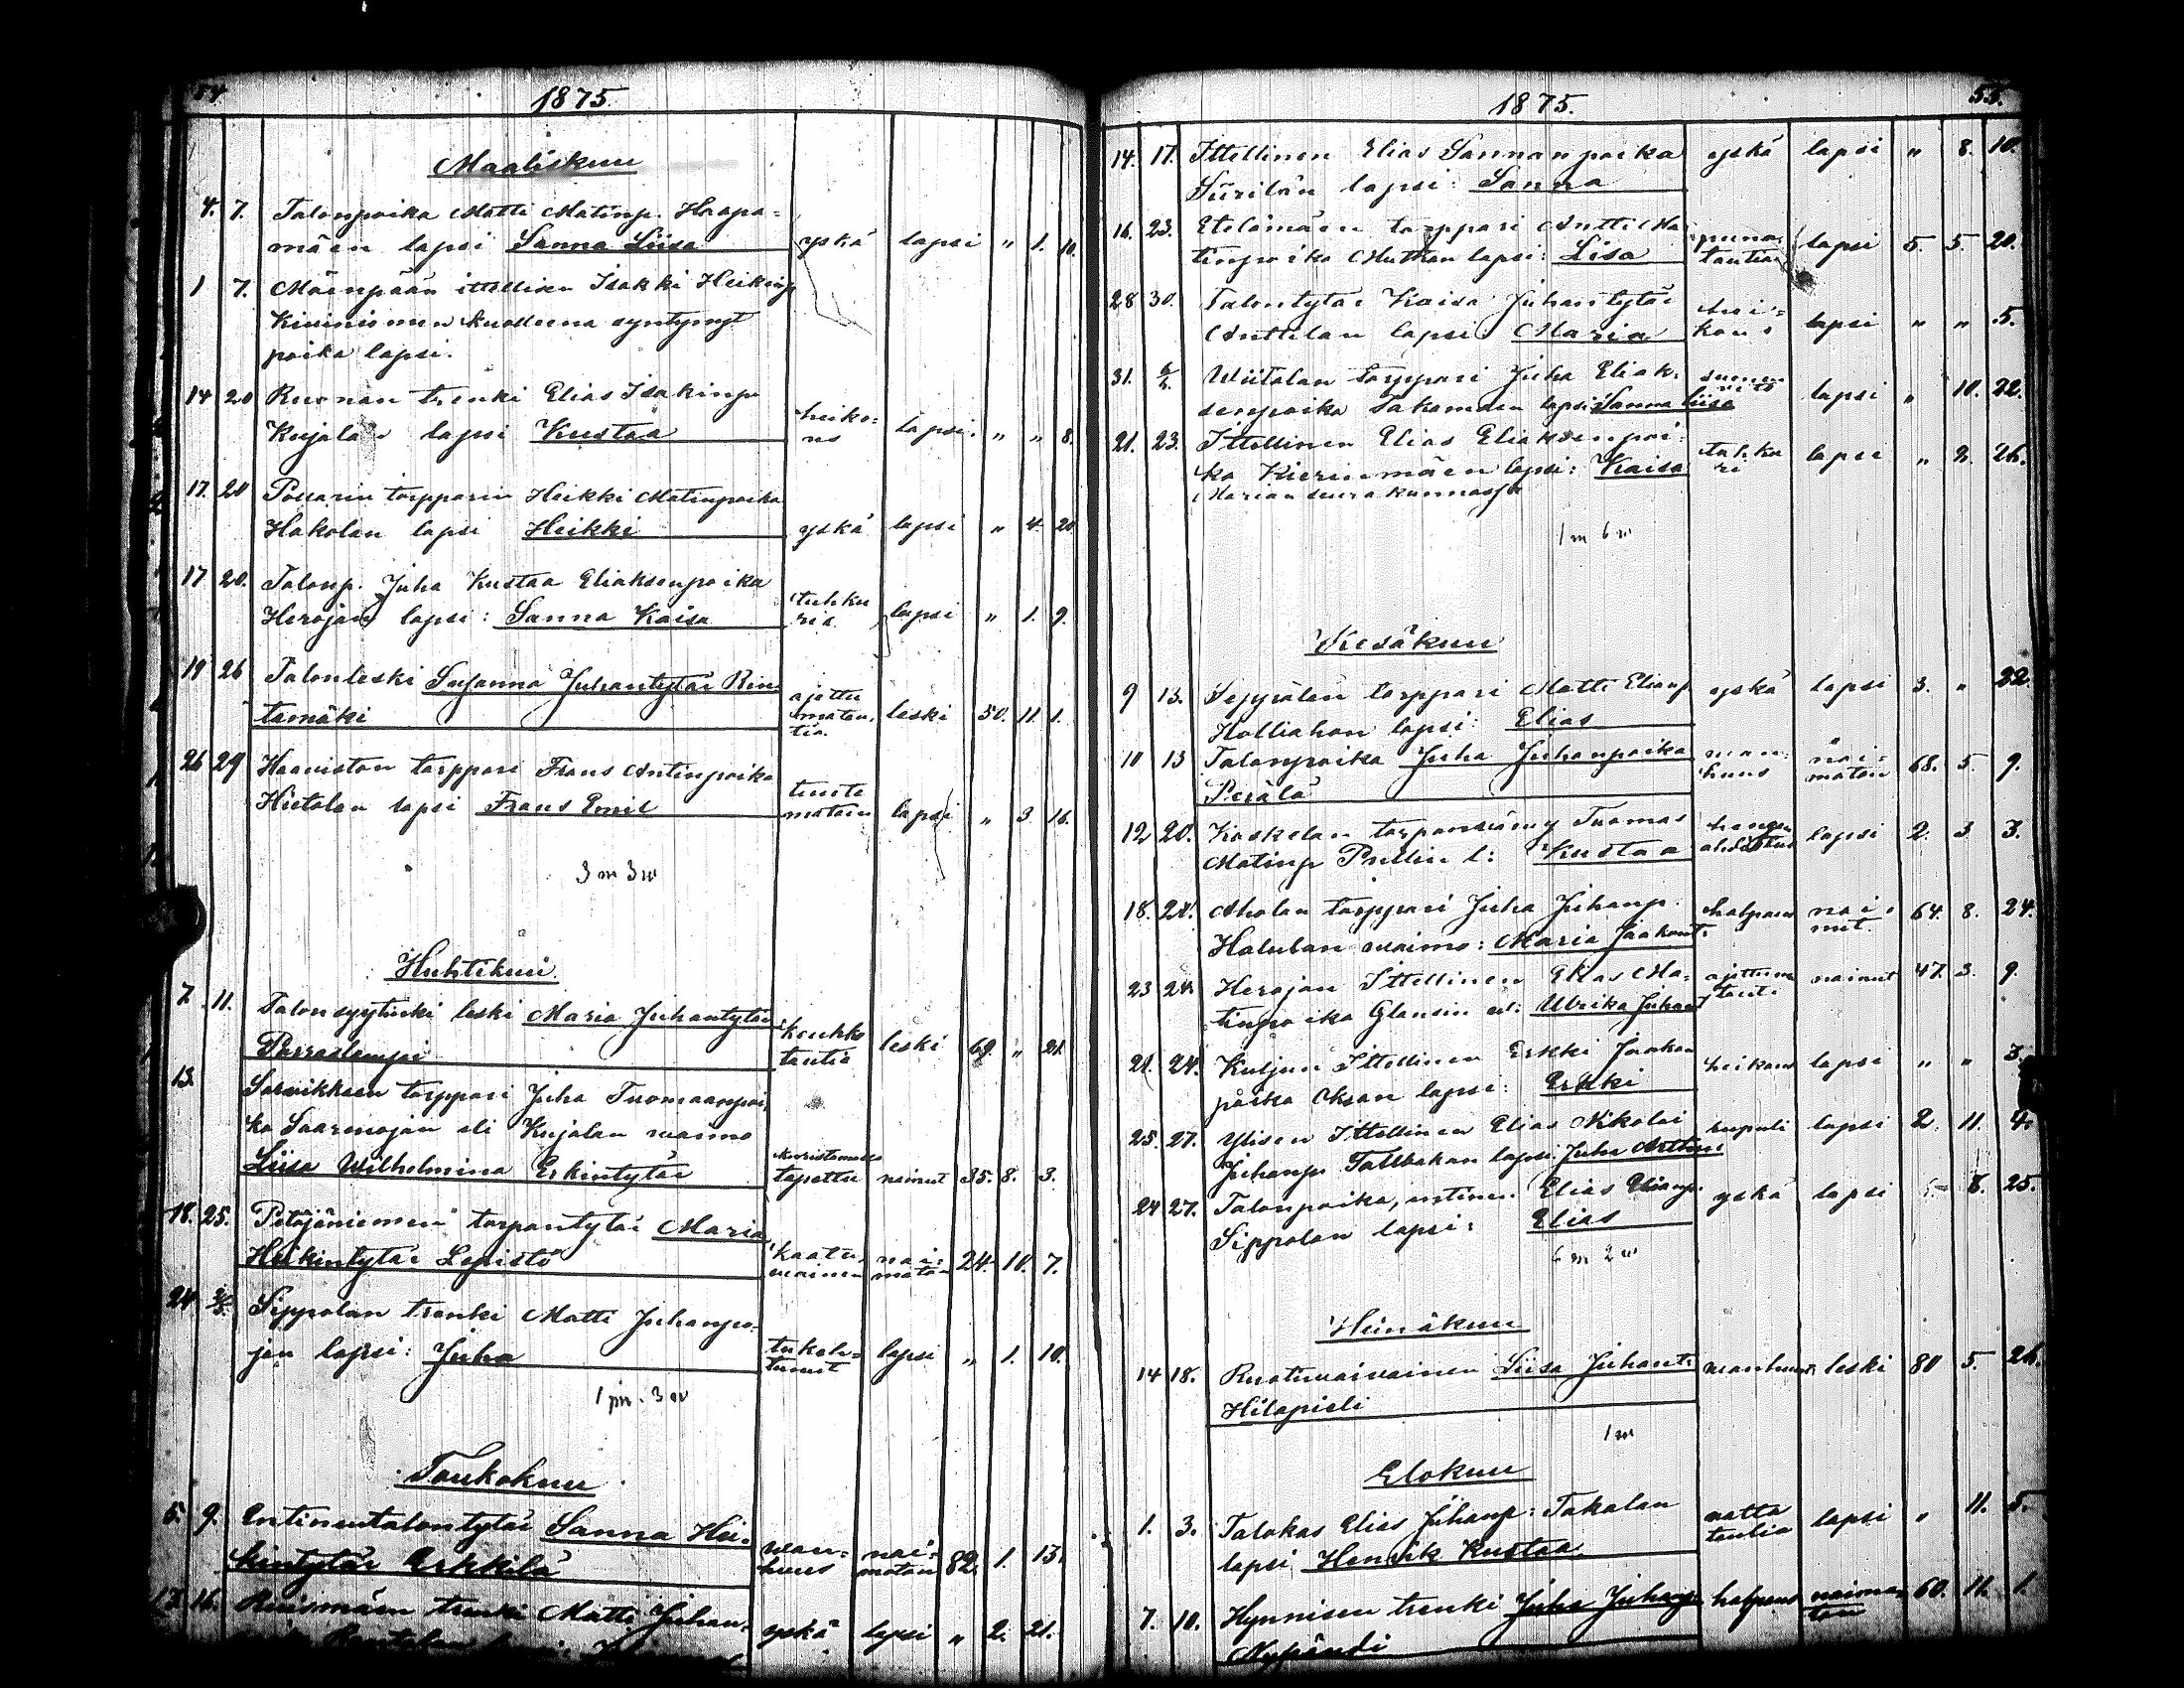 54
1875.
Maaliskuu
4. 7. Talonpoika Matti Matinp. Haapa=
mäen lapsi Sanna Liisa yskä lapsi " 1. 10.
1 7. Mäenpään ittellisen Isakki Heikinp
Kiviniemen kuolleena syntynyt
poika lapsi.
14 20 Ruonan trenki Elias Isakinp
Kujalan lapsi Kustaa heiko=
us lapsi. " " 8.
17. 20 Possarin torpparin Heikki Matinpoika
Hakolan lapsi Heikki yskä lapsi " 4. 20
17 20. Talonp. Juha Kustaa Eliaksenpoika
Herojan lapsi: Sanna Kaisa tuhku
ria lapsi " 1. 9.
19 26 Talonleski Susanna Juhantytär Rin=
tamäki ajettu
matau.
tia. leski 50. 11. 1.
26 29 Haaviston torppari Frans Antinpoika
Hietalan lapsi Frans Emil tunte
matoin lapsi " 3 16.
3 m 3 w
Huhtikuu.
7. 11. Talonsyytinki leski Maria Juhantytär
Porraslampi keuhko
tautia leski 69. " 21.
13. Sarvikkaan torppari Juha Tuomaanpoi,
ka Saarenojan eli Kujalan waimo
Liisa Wilhelmina Erkintytär kuristamalla
tapettu nainut 35. 8. 3.
18. 25. Petäjäniemen torpantytär Maria
Heikintytär Lepistö kaatu,
wainen nai=
matoin 24. 10. 7.
24 2/5. Sippolan trenki Matti Juhanpo=
jan lapsi: Juha tukeh=
tunut lapsi " 1. 10.
1 m. 3 w
Toukokuu.
5. 9. Entinentalontytär Sanna Hei=
kintytär Erkkilä wan=
huus nai=
matoin 82. 1. 13.
17. 16. Ruismäen trenki Matti Juhan=
yskä lapsi " 2. 21.
1875.
55.
14. 17. Ittellinen Elias Sannanpoika yskä lapsi " 8. 10.
Siirilän lapsi: Sanna
16. 23. Etelämäen torppari Antti Ma
tinpoika Mutkan lapsi: Liisa puna
tautia lapsi 5. 5. 20.
28 30. Talontytär Kaisa Juhantytär
Anttilan lapsi Maria hei=
kous lapsi " " 5.
31. 6/6. Wiitalan torppari Juha Eliak=
senpoika Takamaan lapsi: Sanna Liisa lapsi " 10. 22.
21. 23. Ittellinen Elias Eliaksenpoi=
ka Kierinmäen lapsi: Kaisa tuhku
ri lapsi " 2. 26.
Marian seurakunnassa
1 m 6 w
Kesäkuu
9 13. Seppälän torppari Matti Elianp yskä lapsi 3. " 22.
Halliahon lapsi: Elias
10 13 Talonpoika Juha Juhanpoika
Perälä wan=
huus nai=
matoin 68. 5. 9.
12 20. Koskelan torpanisänn Tuomas
Matinp Pullin l: Kustaa hengen
ahdistus lapsi 2. 3. 3.
18. 24. Aholan torppari Juha Juhanp.
Halulan waimo: Maria Jaakont. halpaus nai=
nut. 64. 8. 24.
23 24. Herojan Ittellinen Elias Ma=
tinpoika Glansin w: Ulrika Juhant ajettuma
tauti nainut 47. 3. 9.
21. 24. Kuljun Ittellinen Erkki Jaakon
poika Oksan lapsi: Erkki heikous lapsi " " 3.
25. 27. Ylisen Ittellinen Elias Nikolai
Juhanp Tallbakan lapsi Juha Arthur rupuli lapsi 2. 11. 4.
24 27. Talonpoika, entinen Elias Elianp. yskä lapsi 8. 25.
Sippolan lapsi: Elias
6 m 2 w
Heinäkuu
14 18. Ruotuwaiwainen Liisa Juhant: wanhuus leski 80 5. 26.
Hilapieli
1 w
Elokuu
1. 3. Talokas Elias Juhanp: Takalan
lapsi Henrik Kustaa matta
tautia lapsi " 11. 5.
7. 10. Hynnisen trenki Juha Juhanp halpaus naima=
ton 60. 11. 1.